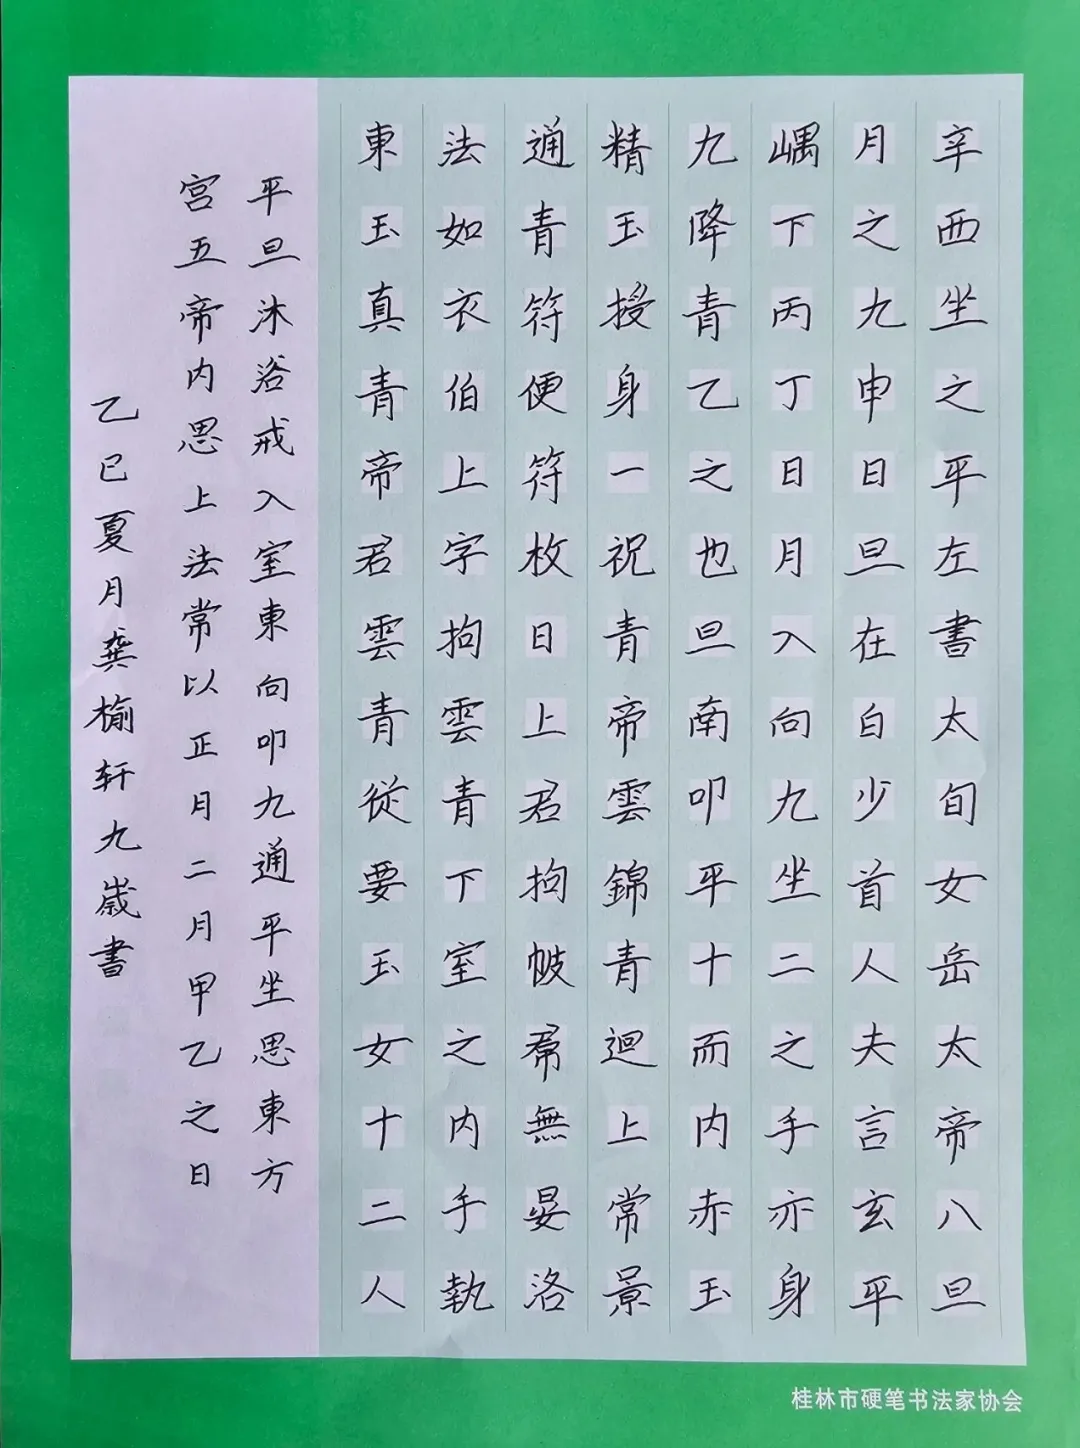 辛西坐之平左書太旬女岳太帝八旦
月之九申日旦在白少首人夫言玄平
嵎下丙丁日月入向九坐二之手亦身
九降青乙之也旦南叩平十而内赤玉
精玉授身一祝青帝雲錦青迴上常景
通青符便符枚日上君拘帔帬無晏洛
法如衣伯上字拘雲青下室之内手執
東玉真青帝君雲青從要玉女十二人
平旦沐浴戒入室東向叩九通平坐思東方
宫五帝内思上法常以正月二月甲乙之日
乙巳夏月龚榆轩九歲書
桂林市硬笔书法家协会